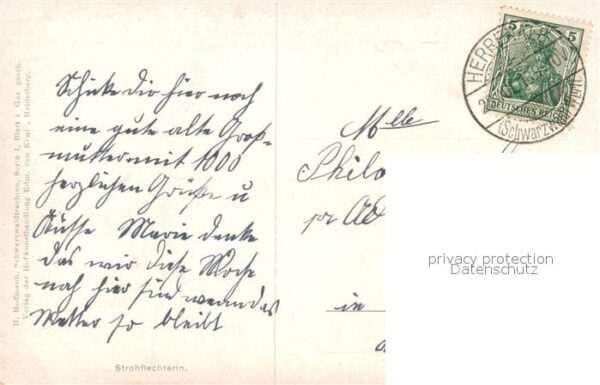 H. Hoffmann, Schwarzwaldtrachten, Serie I, Blatt 4 Ges. gesch.
Verlag der Hofkunsthandlung Edm. von König, Heidelberg.
Schicke dir hier noch
eine gute alte Groß-
mutter mit 1000
herzlichen Grüße u
Küsse Marie denke
das wir diese Woche
noch hier sind wenn das
Wetter so bleibt
Strohflechterin.
5 5
DEUTSCHES REICH
(Schwarzw.
Mlle
Philo
pr Ad
in
privacy protection
Datenschutz